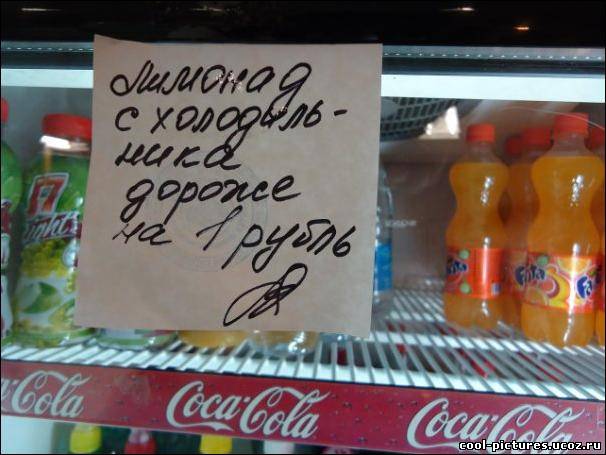 Лимонад
с холодиль-
ника
дороже
на 1 рубль
Fanta
Fanta
Coca-Cola
Coca-Cola
Coca-Cola
cool-pictures.ucoz.ru